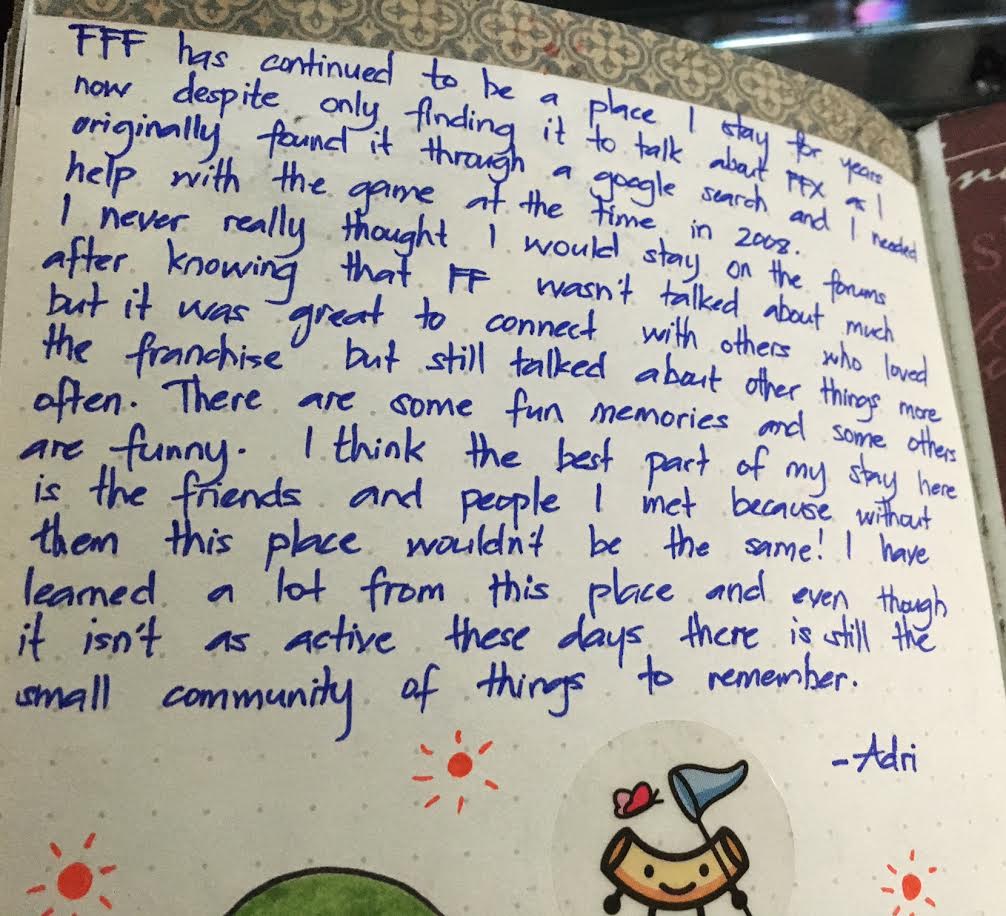 FFF has continued to be a place I stay for years
now despite only finding it to talk about FFX as I
originally found it through a google search and I needed
help with the game at the time in 2008.
I never really thought I would stay on the forums
after knowing that FF wasn't talked about much
but it was great to connect with others who loved
the franchise but still talked about other things more
often. There are some fun memories and some others
are funny. I think the best part of my stay here
is the friends and people I met because without
them this place wouldn't be the same! I have
learned a lot from this place and even though
it isn't as active these days there is still the
small community of things to remember.
-Adri